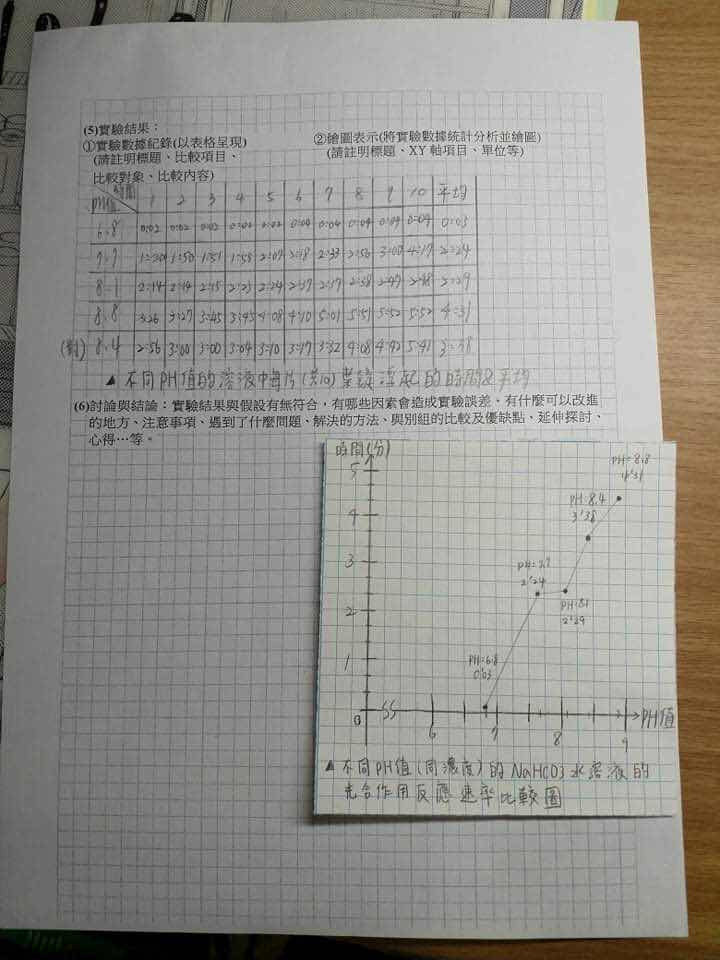 (5)實驗結果：
①實驗數據紀錄(以表格呈現)
(請註明標題、比較項目、
比較對象、比較內容)
②繪圖表示(將實驗數據統計分析並繪圖)
(請註明標題、XY 軸項目、單位等)
時間 1 2 3 4 5 6 7 8 9 10 平均
PH值
6.8 0:02 0:02 0:02 0:02 0:02 0:04 0:04 0:04 0:04 0:04 0:03
7.7 1:50 1:51 1:58 2:07 2:18 2:33 2:56 3:00 4:17 2:24
8.1 2:14 2:14 2:15 2:23 2:24 2:37 2:37 2:38 2:47 2:48 2:29
8.8 3:26 3:27 3:45 3:45 4:08 4:10 5:01 5:51 5:52 5:52 4:31
(對) 8.4 2:56 3:00 3:00 3:04 3:10 3:17 3:32 4:08 4:42 5:41 3:38
▲不同PH值的溶液中每片(共10)葉錠浮起的時間&平均
(6)討論與結論：實驗結果與假設有無符合，有哪些因素會造成實驗誤差、有什麼可以改進
的地方、注意事項、遇到了什麼問題、解決的方法、與別組的比較及優缺點、延伸探討、
心得…等。
時間(分)
5
4
3
2
1
0
6
7
8
9
PH值
PH=8.8
4'31
PH=8.4
3'38
PH=7.7
2'24
PH=8.1
2'29
PH=6.8
0'03
▲不同PH值(同濃度)的NaHCO3水溶液的
光合作用反應速率比較圖